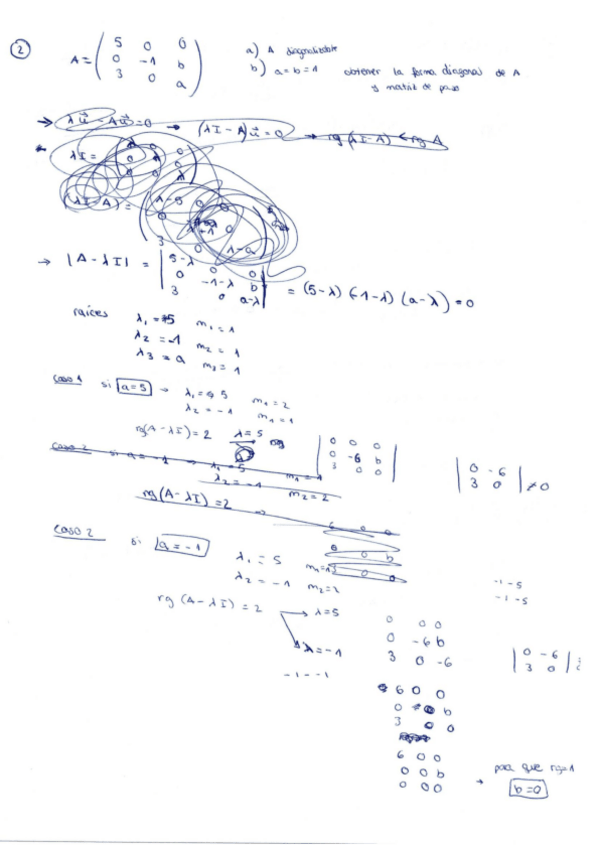 2
A = ( 5 0 0
0 -1 b
3 0 a )
a) A diagonalizable
b) a=b=1 obtener la forma diagonal de A
y matriz de paso
→ λu⃗ - Au⃗ = 0 → (λI - A)u⃗ = 0 → rg(λI-A) < rg A
λI =
(λI-A) =
→ |A - λI| = | 5-λ 0 0
0 -1-λ b
3 0 a-λ | = (5-λ) (-1-λ) (a-λ) = 0
raíces λ₁ = 5 m₁ = 1
λ₂ = -1 m₂ = 1
λ₃ = a m₃ = 1
caso 1 si a=5 → λ₁ = 5 m₁ = 2
λ₂ = -1 m₁ = 1
rg(A-λI) = 2 λ=5 rg | 0 0 0
0 -6 b
3 0 0 |
| 0 -6
3 0 | ≠ 0
caso 2 si a = -1 λ₁ = 5 m₁ = 1
λ₂ = -1 m₂ = 2
rg(A-λI) = 2 ⇒
caso 2 si a = -1 λ₁ = 5 m₁ = 1
λ₂ = -1 m₂ = 2
-1-5
-1-5
rg (A-λI) = 2 → λ=5
0 0 0
0 -6 b
3 0 -6
| 0 -6
3 0 |
λ = -1
-1--1
6 0 0
0 0 b
3 0 0
6 0 0
0 0 b
0 0 0
→ para que rg=1
b=0